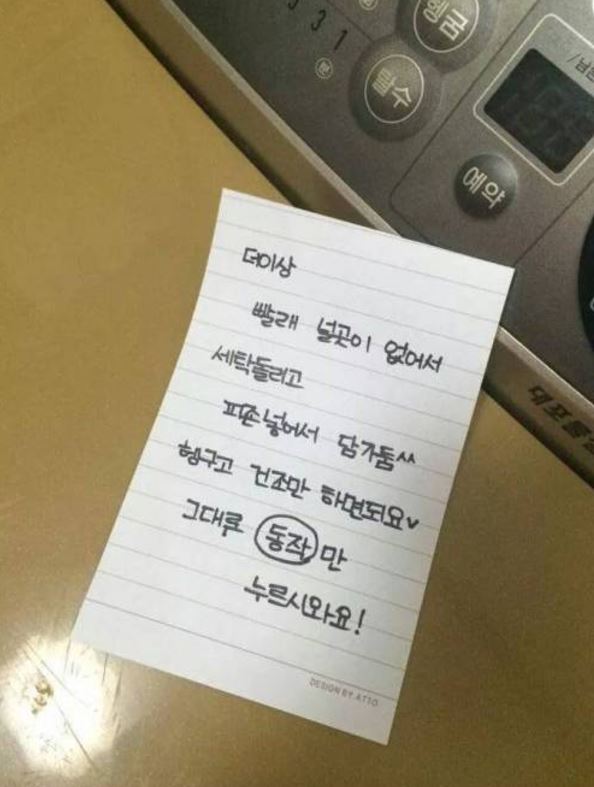 헹굼
탈수
331
분
/남은
예약
더이상
빨래 널곳이 없어서
세탁돌리고
피죤넣어서 담가둠^^
헹구고 건조만 하면되요♥
그대로 동작만
누르시와요!
DESIGN BY ATTO